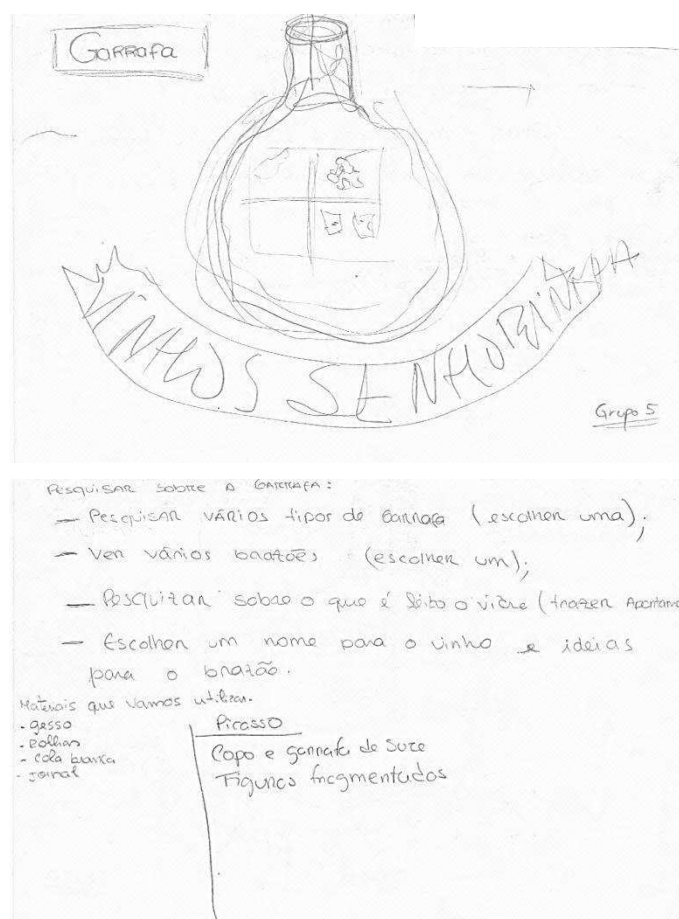 Garrafa
VINHOS SENHORINHA
Grupo 5
Pesquisar sobre a GARRAFA:
— Pesquisar vários tipos de Garrafa (escolher uma);
— Ver vários brazões (escolher um);
— Pesquizar sobre o que é feito o vidro (trazer Apontam
— Escolher um nome para o vinho e ideias
para o brazão.
Materiais que vamos utilizar.
- gesso
- Rolhas
- cola branca
- jornal
Picasso
Copo e garrafa de Suze
Figuras fragmentadas